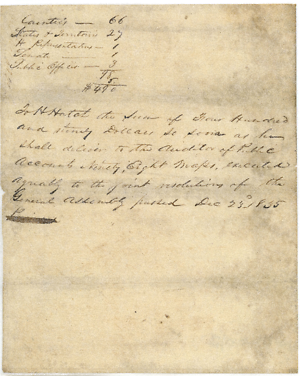 Counties — 66
States & Territories 27
H Representatives — 1
Senate — 1
Public Offices — 3
98
5
$490
To H the Sum of Four Hundred
and ninety Dollars So Soon as he
shall deliver to the Auditor of Public
Accounts Ninety Eight Maps, executed
agreeably to the joint resolutions of the
General Assembly passed Dec 23d 1835